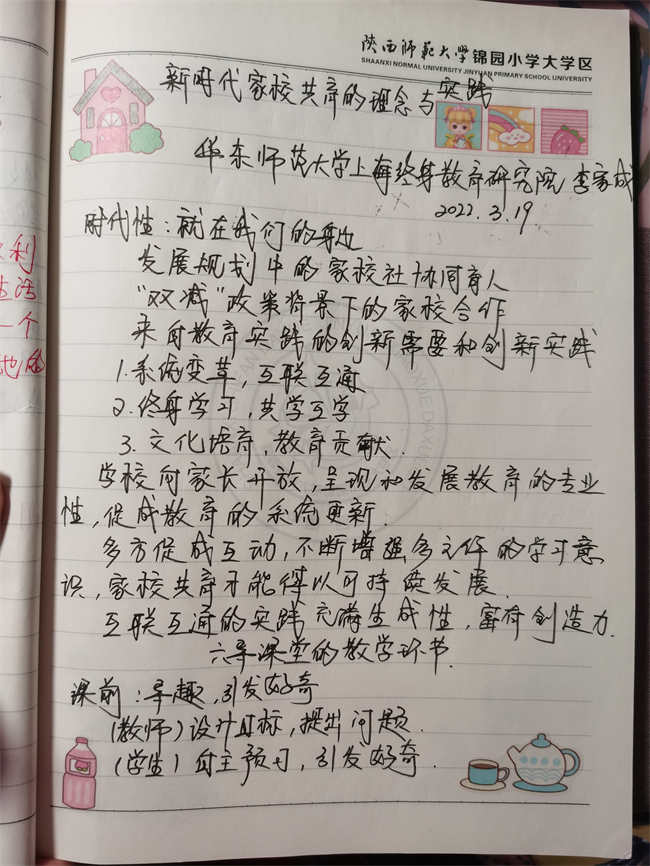 陕西师范大学锦园小学大学区
SHAANXI NORMAL UNIVERSITY JINYUAN PRIMARY SCHOOL UNIVERSITY
新时代家校共育的理念与实践
华东师范大学上海终身教育研究院 李家成
2022.3.19
时代性：就在我们的身边
发展规划中的家校社协同育人
“双减”政策背景下的家校合作
来自教育实践的创新需要和创新实践
1.系统变革，互联互通
2.终身学习，共学互学
3.文化培育，教育贡献.
学校向家长开放，呈现和发展教育的专业
性，促成教育的系统更新.
多方促成互动，不断增强多文件的学习意
识，家校共育才能得以可持续发展.
互联互通的实践充满生成性，富有创造力.
六导课堂的教学环节.
课前：导趣，引发好奇
（教师）设计目标，提出问题.
（学生）自主预习，引发好奇.
利
生活
一个
地的